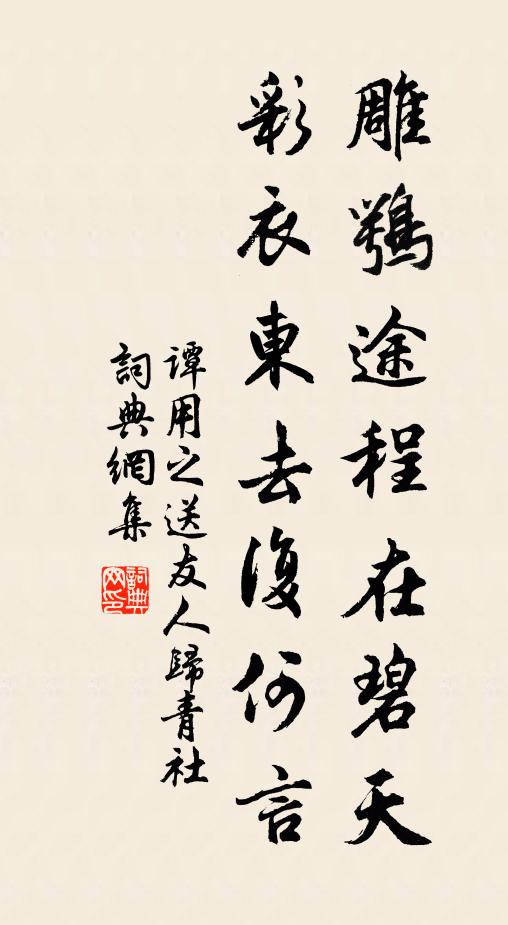 雕鶚途程在碧天
彩衣東去復何言
譚用之送友人歸青社
詞典網集
詞典网印